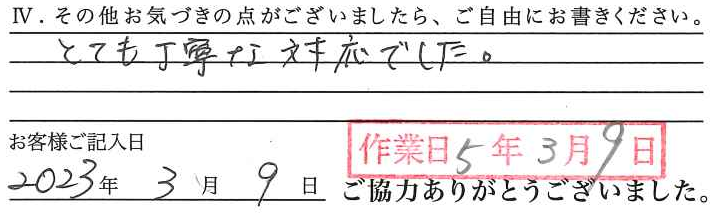 Ⅳ．その他お気づきの点がございましたら、ご自由にお書きください。
とても丁寧な対応でした。
お客様ご記入日
作業日5年3月9日
2023年3月9日
ご協力ありがとうございました。